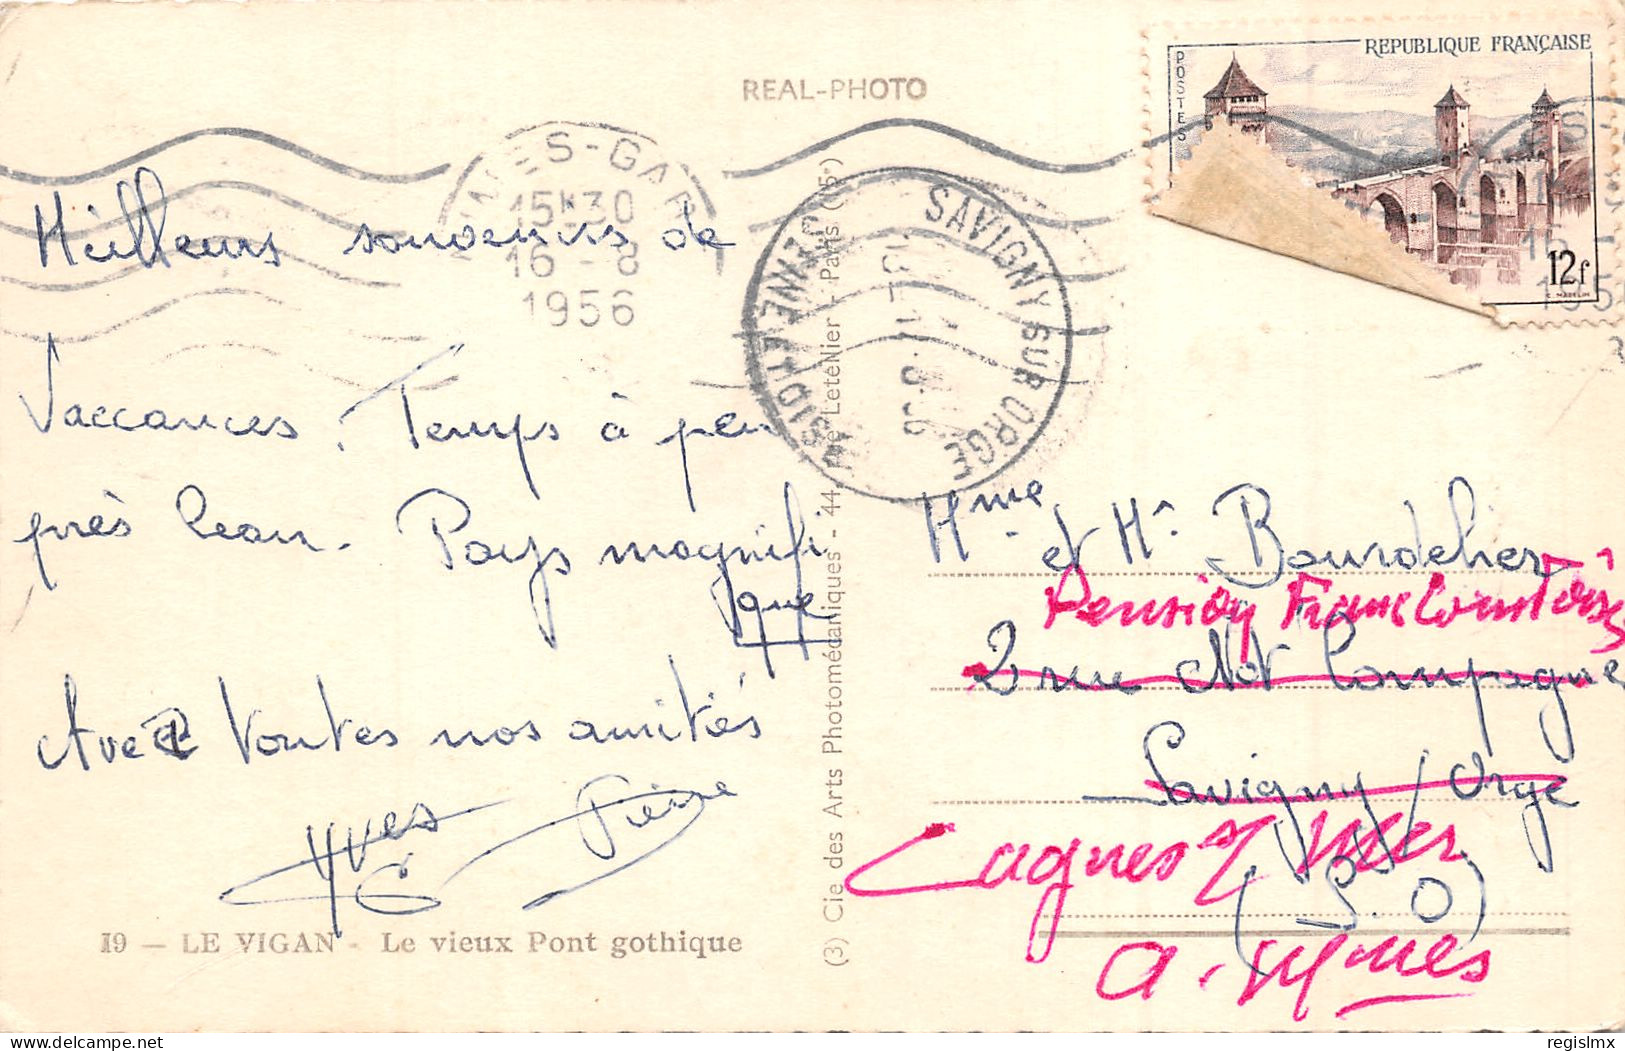 REAL-PHOTO
REPUBLIQUE FRANÇAISE
POSTES
12f
NIMES-GARE
15H30
16-8
1956
SAVIGNY SUR ORGE
SEINE ET OISE
Meilleurs souvenirs de
Vaccances. Temps à peu
près beau. Pays magnifi
que
Avec toutes nos amitiés
Yves
Pierre
19 - LE VIGAN - Le vieux Pont gothique
(3) Cie des Arts Photomécaniques - 44, rue Letellier - Paris (15e)
Mme et Mr Bourdelier
Pension Franc Comtoise
2 rue Not Compagne
Savigny / Orge
Cagnes s/ Mer
(S. O)
A. Mmes
delcampe.net
regislmx